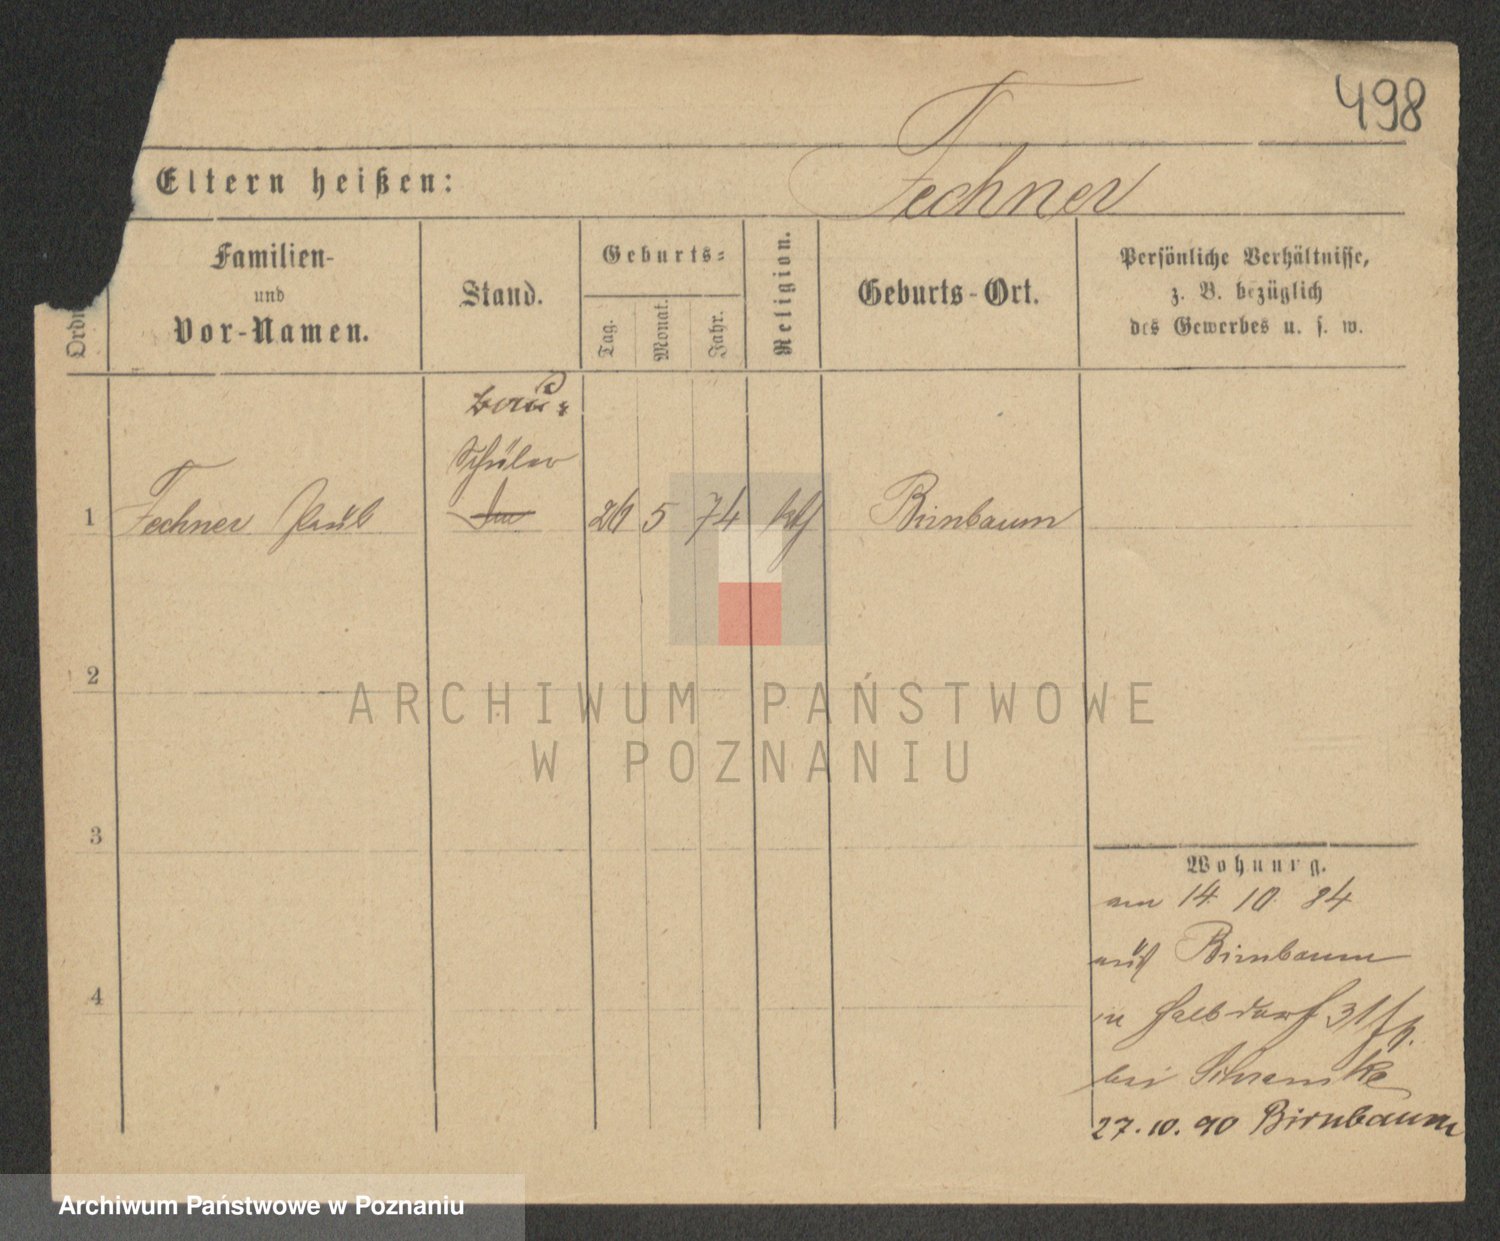 498
Fechner
Eltern heißen:
Ordn
Familien-
und
Vor-Namen.
Stand.
Geburts-
Tag.
Monat.
Jahr.
Religion.
Geburts-Ort.
Persönliche Verhältnisse,
z. B. bezüglich
des Gewerbes u. s. w.
1
Fechner Paul
Schüler
26
5
74
kth
Birnbaum
2
3
4
Wohnung.
am 14 10 84
aus Birnbaum
in Halbdorf 31
bei Schramke
27.10.90 Birnbaum
ARCHIWUM PAŃSTWOWE
W POZNANIU
Archiwum Państwowe w Poznaniu